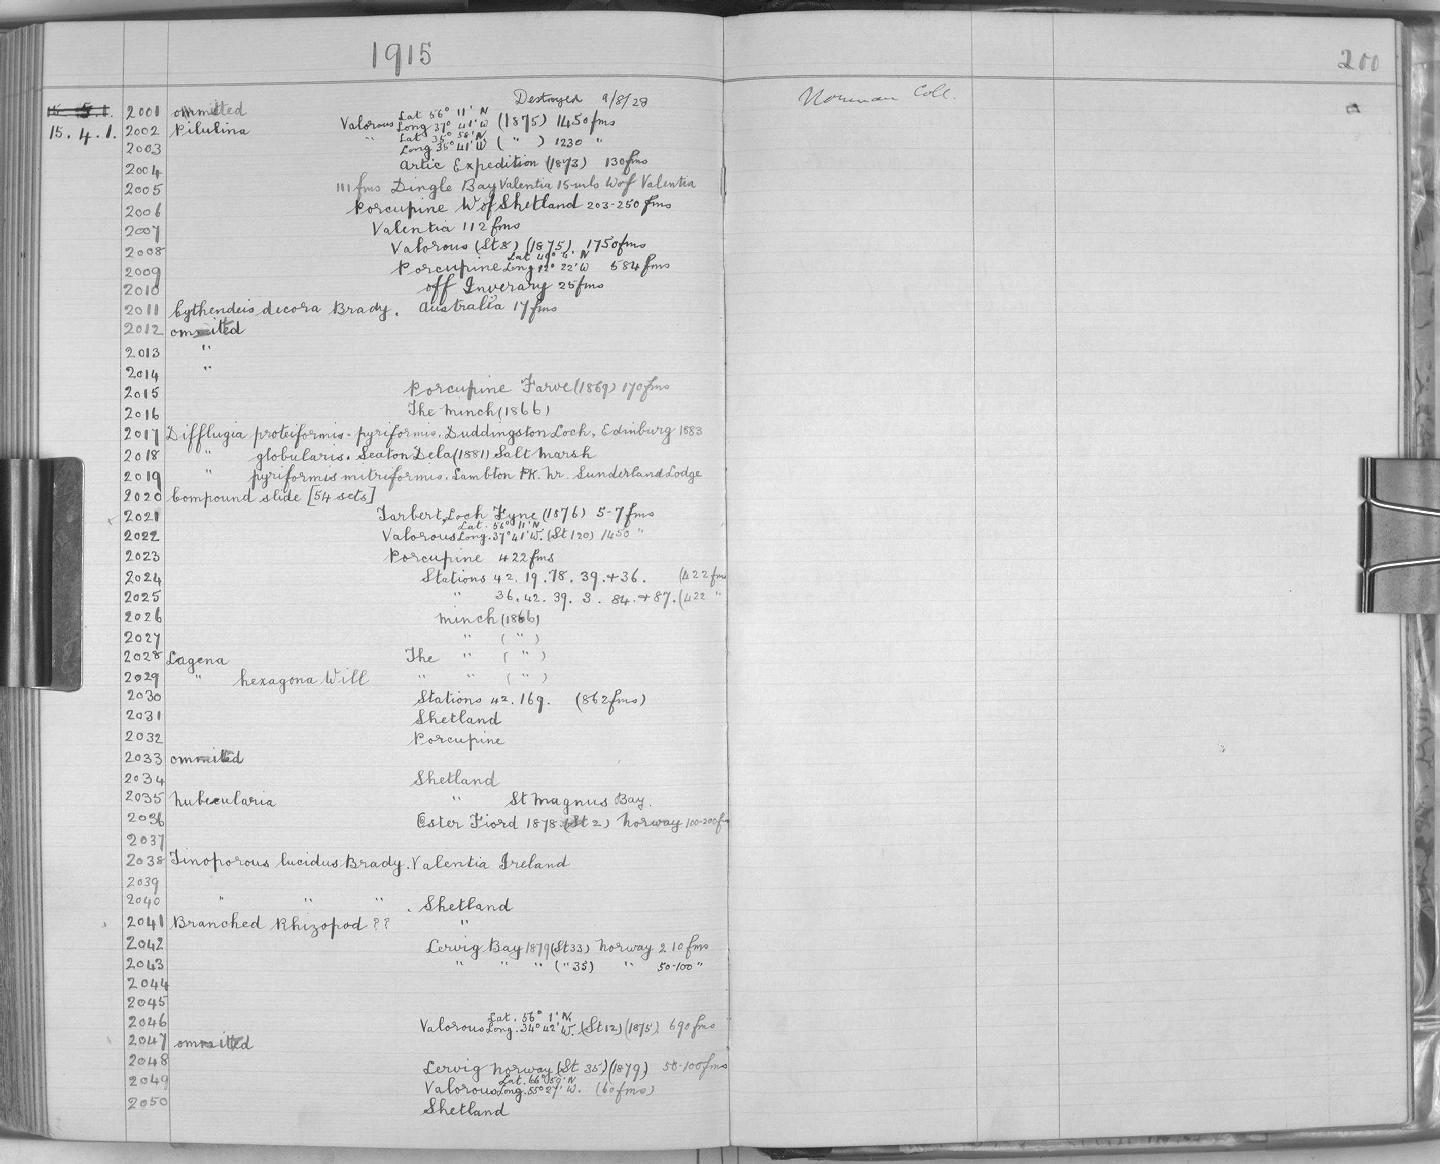 1915
200
Destroyed 9/8/28
Norman Coll.
15. 5. 1. 2001 ommitted
15. 4. 1. 2002 Pilulina Valorous Lat 56° 11' N Long 37° 41' W (1875) 1450 fms
2003 " Lat 35° 58' N Long 35° 41' W ( " ) 1230 "
2004 Artic Expedition (1873) 130 fms
2005 111 fms Dingle Bay Valentia 15-mls W of Valentia
2006 Porcupine W of Shetland 203-250 fms
2007 Valentia 112 fms
2008 Valorous (St 8) (1875) 1750 fms
2009 Porcupine Lat 49° 6' N Long 12° 22' W 584 fms
2010 off Inverary 25 fms
2011 Cythendeis decora Brady. Australia 17 fms
2012 ommitted
2013 "
2014 "
2015 Porcupine Faroe (1869) 170 fms
2016 The Minch (1866)
2017 Difflugia proteiformis - pyriformis. Duddingston Loch, Edinburg 1883
2018 " globularis. Seaton Dela (1881) Salt Marsh
2019 " pyriformis mitriformis. Lambton PK. Nr. Sunderland Lodge
2020 Compound slide [54 sets]
2021 Tarbert, Loch Fyne (1876) 5-7 fms
2022 Valorous Lat. 56° 11' N. Long. 37° 41' W. (St 120) 1450 "
2023 Porcupine 422 fms
2024 Stations 42. 19. 78. 39. + 36. (422 fms
2025 " 36. 42. 39. 3. 84. + 87. (422 "
2026 Minch (1866)
2027 " ( " )
2028 Lagena The " ( " )
2029 " hexagona Will " " ( " )
2030 Stations 42. 169. (862 fms)
2031 Shetland
2032 Porcupine
2033 ommitted
2034 Shetland
2035 Nubecularia " St Magnus Bay.
2036 Oster Fiord 1878 (St 2) Norway 100-200 fm
2037
2038 Tinoporous lucidus Brady. Valentia Ireland
2039
2040 " " " . Shetland
2041 Branched Rhizopod ?? "
2042 Lervig Bay 1879 (St 33) Norway 210 fms
2043 " " " ( " 35) " 50-100 "
2044
2045
2046 Valorous Lat. 56° 1' N. Long. 34° 42' W. (St 12) (1875) 690 fms
2047 ommitted
2048 Lervig Norway (St 35) (1879) 50-100 fms
2049 Valorous Lat. 66° 59' N Long. 55° 27' W. (60 fms)
2050 Shetland